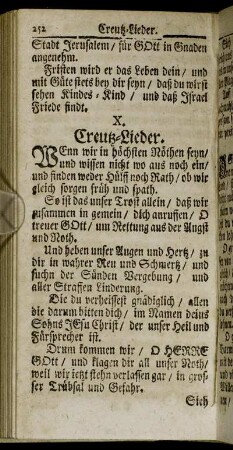 252 Creutz-Lieder.
Stadt Jerusalem/ für GOtt in Gnaden
angenehm.
Fristen wird er das Leben dein/ und
mit Güte stets bey dir seyn/ daß du wirst
sehen Kindes-Kind/ und daß Israel
Friede findt.
X.
Creutz-Lieder.
WEnn wir in höchsten Nöthen seyn/
und wissen nicht wo aus noch ein/
und finden weder Hülff noch Rath/ ob wir
gleich sorgen früh und spath.
So ist das unser Trost allein/ daß wir
zusammen in gemein/ dich anruffen/ O
treuer GOtt/ um Rettung aus der Angst
und Noth.
Und heben unser Augen und Hertz/ zu
dir in wahrer Reu und Schmertz/ und
suchn der Sünden Vergebung/ und
aller Straffen Linderung.
Die du verheissest gnädiglich/ allen
die darum bitten dich/ im Namen deins
Sohns JEsu Christ/ der unser Heil und
Fürsprecher ist.
Drum kommen wir/ O HERRE
GOtt/ und klagen dir all unser Noth/
weil wir jetzt stehn verlassen gar/ in gros-
ser Trübsal und Gefahr.
Sieh